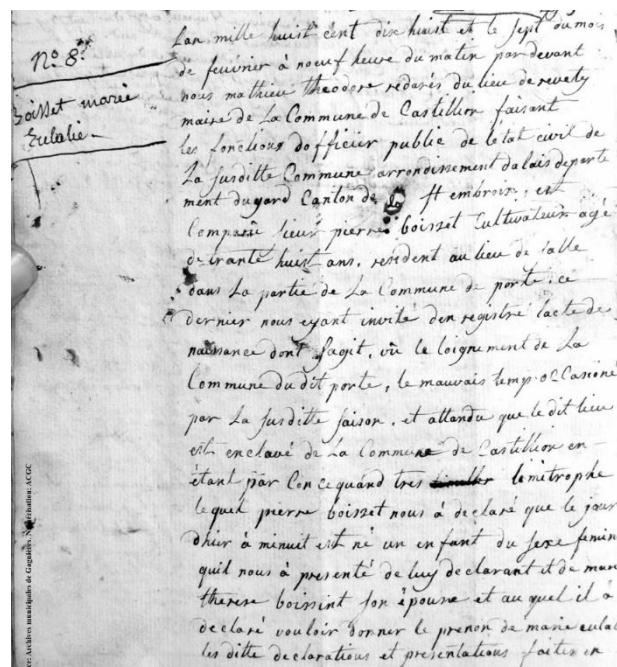 N.o 8.
Boisset marie
Eulalie
Lan mille huist cent dixe huist et le sept du mois
de feuvrier à noeuf heure du matin par devant
nous mathieu theodore redarés du lieu de revety
maire de La Commune de Castillion faisant
les fonctions dofficier publie de letat civil de
La susditte Commune arrondissement dalais departe
ment du gard Canton de St embroix, est
Comparu sieur pierre boisset Cultivateur agé
de trante huist ans, resident au lieu de salle
dans La partie de La Commune de porte, ce
dernier nous eyant invité den registré lacte de
naissance dont sagit, vû le loignement de La
Commune du dit porte, le mauvais temp occasioné
par La susditte saison, et attandu que le dit lieu
est enclavé de La Commune de Castillion en
étant par Con cequand tres lemitrophe
lequel pierre boisset nous à declaré que le jour
dhier à minuit est né un enfant du sexe feminin
quil nous à presenté de luy declarant et de marie
therese boissint son épouse et au quel il à
declaré vouloir donner le prenon de marie eulalie
les ditte declarations et presentations faites en
Source: Archives municipales de Gagnières. Numérisation: ACGC